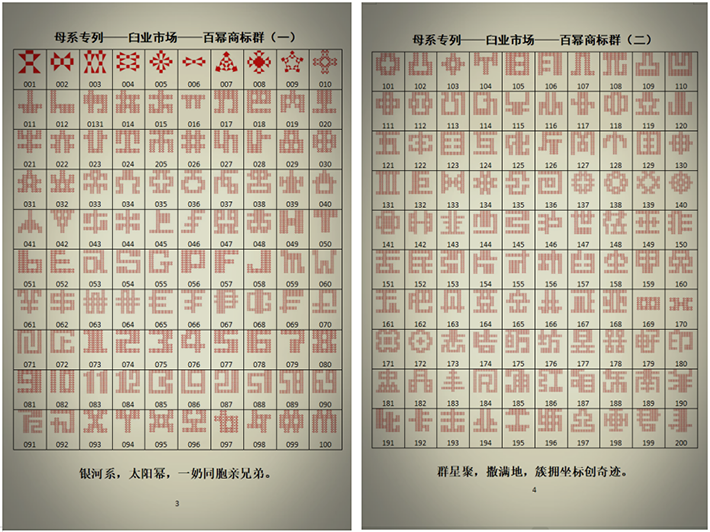 母系专列——白业市场——百幂商标群（一）
001 002 003 004 005 006 007 008 009 010
011 012 0131 014 015 016 017 018 019 020
021 022 023 024 025 026 027 028 029 030
031 032 033 034 035 036 037 038 039 040
041 042 043 044 045 046 047 048 049 050
051 052 053 054 055 056 057 058 059 060
061 062 063 064 065 066 067 068 069 070
071 072 073 074 075 076 077 078 079 080
081 082 083 084 085 086 087 088 089 090
091 092 093 094 095 096 097 098 099 100
银河系，太阳幂，一奶同胞亲兄弟。
3
母系专列——白业市场——百幂商标群（二）
101 102 103 104 105 106 107 108 109 110
111 112 113 114 115 116 117 118 119 120
121 122 123 124 125 126 127 128 129 130
131 132 133 134 135 136 137 138 139 140
141 142 143 144 145 146 147 148 149 150
151 152 153 154 155 156 157 158 159 160
161 162 163 164 165 166 167 168 169 170
171 172 173 174 175 176 177 178 179 180
181 182 183 184 185 186 187 188 189 190
191 192 193 194 195 196 197 198 199 200
群星聚，撒满地，簇拥坐标创奇迹。
4